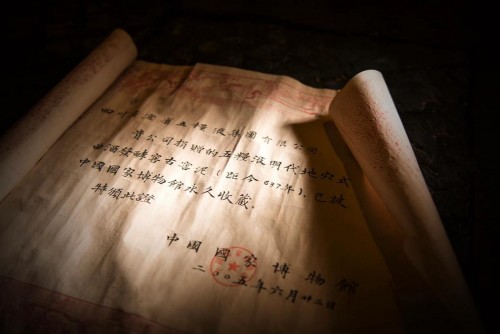 四川宜賓五糧液集團有限公司
貴公司捐贈的五糧液明代地穴式
曲酒發酵窖古窖泥（距今637年），已被
中國國家博物館永久收藏。
特頒此證
中國國家博物館
二〇〇五年六月廿二日